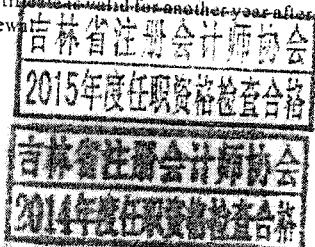 is valid for another year after
吉林省注册会计师协会
2015年度任职资格检查合格
吉林省注册会计师协会
2014年度任职资格检查合格